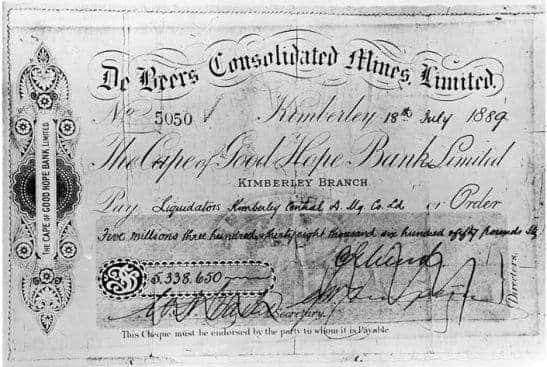 De Beers Consolidated Mines, Limited.
No. 5050 Kimberley 18th July 1889
The Cape of Good Hope Bank Limited
KIMBERLEY BRANCH
Pay Liquidators Kimberley Central D. Mg. Co. Ld. or Order
Five millions three hundred & thirty eight thousand six hundred & fifty pounds Stg
£5,338.650
Directors.
Secretary.
This Cheque must be endorsed by the party to whom it is Payable
THE CAPE OF GOOD HOPE BANK LIMITED